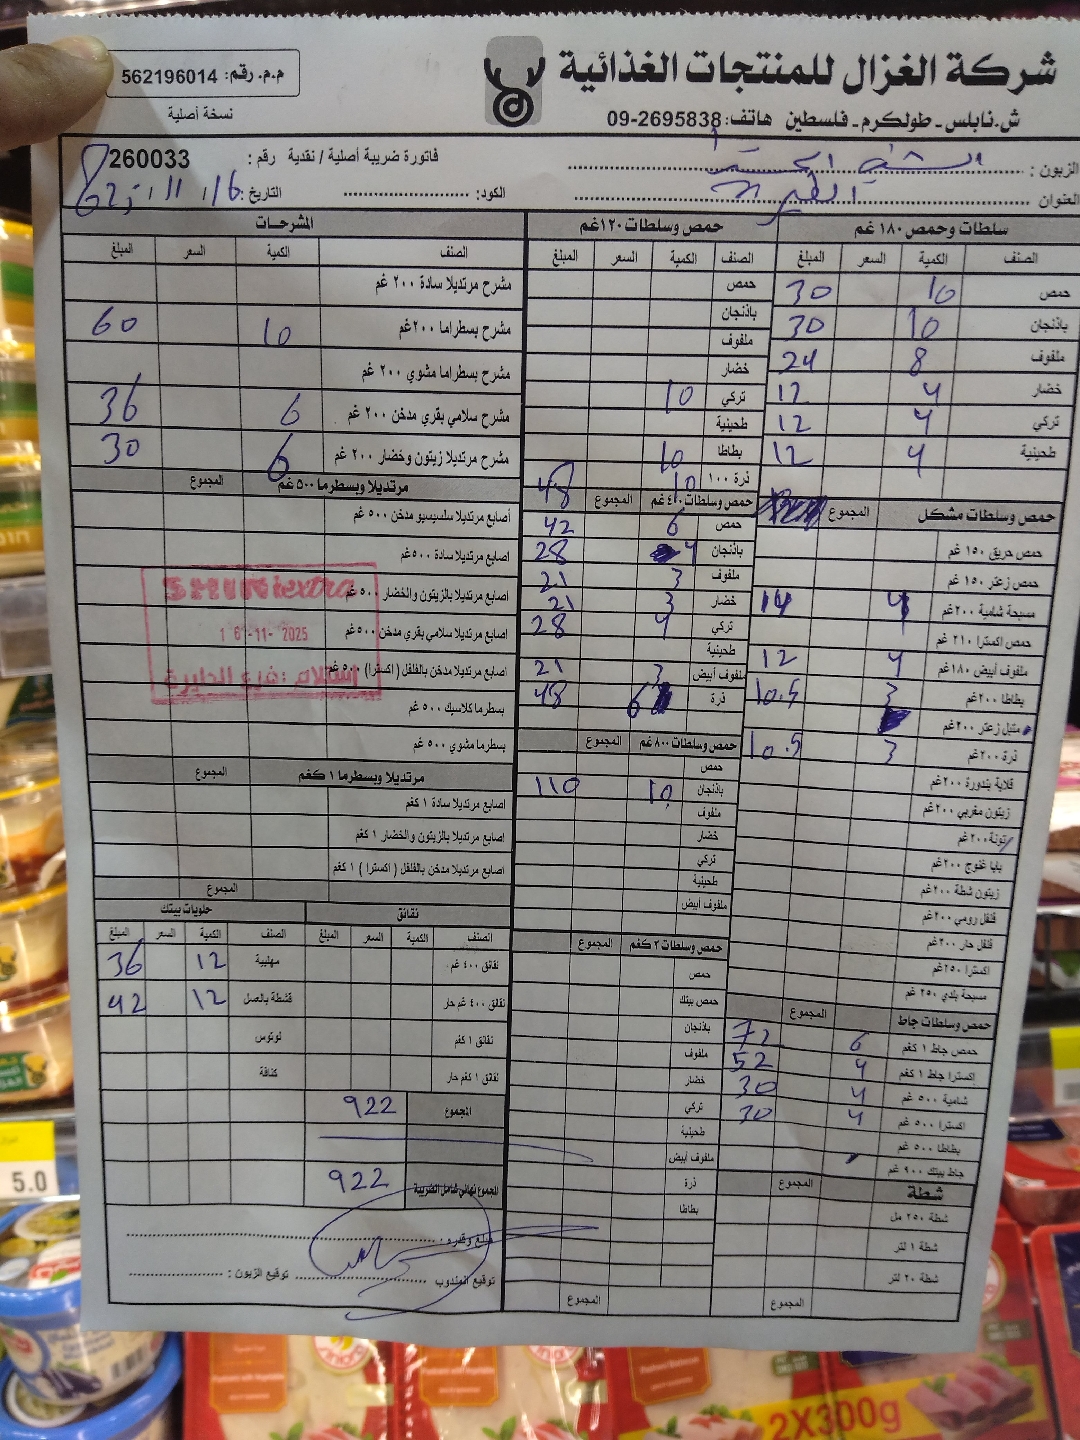 شركة الغزال للمنتجات الغذائية
ش.نابلس - طولكرم - فلسطين هاتف: 09-2695838
م.م. رقم: 562196014
نسخة أصلية
فاتورة ضريبية أصلية / نقدية رقم: 260033
الزبون:
العنوان
الكود:
التاريخ:
سلطات وحمص ١٨٠ غم
الصنف الكمية السعر المبلغ
حمص 10 30
باذنجان 10 30
ملفوف 8 24
خضار 4 12
تركي 4 12
طحينية 4 12
حمص وسلطات مشكل المجموع
حمص حريق ١٥٠ غم
حمص زعتر ١٥٠ غم
مسبحة شامية ٢٠٠غم 4 14
حمص اكسترا ٢١٠ غم
ملفوف أبيض ١٨٠غم 4 12
بطاطا ٢٠٠غم 3 10.5
متبل زعتر ٢٠٠غم
ذرة ٢٠٠غم 3 10.5
قلاية بندورة ٢٠٠غم
زيتون مغربي ٢٠٠غم
تونة ٢٠٠غم
بابا غنوج ٢٠٠غم
زيتون شطة ٢٠٠غم
فلفل رومي ٢٠٠غم
فلفل حار ٢٠٠غم
اكسترا ٢٥٠غم
مسبحة بلدي ٢٥٠ غم
حمص وسلطات جاط المجموع
حمص جاط ١ كغم 6 72
اكسترا جاط ١ كغم 4 52
شامية ٥٠٠ غم 4 30
اكسترا ٥٠٠ غم 4 30
بطاطا ٥٠٠ غم
جاط بيتك ٩٠٠ غم
شطة المجموع
شطة ٢٥٠ مل
شطة ١ لتر
شطة ٢٠ لتر
المجموع
حمص وسلطات ١٢٠غم
الصنف الكمية السعر المبلغ
حمص
باذنجان
ملفوف
خضار
تركي 10
طحينية
بطاطا 10
ذرة ١٠٠ 10 48
حمص وسلطات ٤٠٠غم المجموع
حمص 6 42
باذنجان 4 28
ملفوف 3 21
خضار 3 21
تركي 4 28
طحينية
ملفوف أبيض 3 21
ذرة 6 48
حمص وسلطات ٨٠٠غم المجموع
حمص
باذنجان 10 110
ملفوف
خضار
تركي
طحينية
ملفوف أبيض
حمص وسلطات ٢ كغم المجموع
حمص
حمص بيتك
باذنجان
ملفوف
خضار
تركي
طحينية
ملفوف أبيض
ذرة
بطاطا
المجموع
المشرحات
الصنف الكمية السعر المبلغ
مشرح مرتديلا سادة ٢٠٠ غم
مشرح بسطراما ٢٠٠غم 10 60
مشرح بسطراما مشوي ٢٠٠ غم
مشرح سلامي بقري مدخن ٢٠٠ غم 6 36
مشرح مرتديلا زيتون وخضار ٢٠٠ غم 6 30
مرتديلا وبسطرما ٥٠٠ غم المجموع
أصابع مرتديلا سلسيسيو مدخن ٥٠٠ غم
اصابع مرتديلا سادة ٥٠٠غم
اصابع مرتديلا بالزيتون والخضار ٥٠٠ غم
اصابع مرتديلا سلامي بقري مدخن ٥٠٠غم
اصابع مرتديلا مدخن بالفلفل (اكسترا) ٥٠٠ غم
بسطرما كلاسيك ٥٠٠ غم
بسطرما مشوي ٥٠٠ غم
SHINI extra
16-11-2025
استلام: فرع الطيرة
مرتديلا وبسطرما ١ كغم المجموع
اصابع مرتديلا سادة ١ كغم
اصابع مرتديلا بالزيتون والخضار ١ كغم
اصابع مرتديلا مدخن بالفلفل (اكسترا) ١ كغم
المجموع
نقانق
الصنف الكمية السعر المبلغ
نقانق ٤٠٠ غم
نقانق ٤٠٠ غم حار
نقانق ١ كغم
نقانق ١ كغم حار
حلويات بيتك
الصنف الكمية السعر المبلغ
مهلبية 12 36
قشطة بالعسل 12 42
لوتوس
كنافة
المجموع 922
المجموع نهائي شامل الضريبة 922
مبلغ وقدره:
توقيع المندوب
توقيع الزبون:
5.0
2X300g